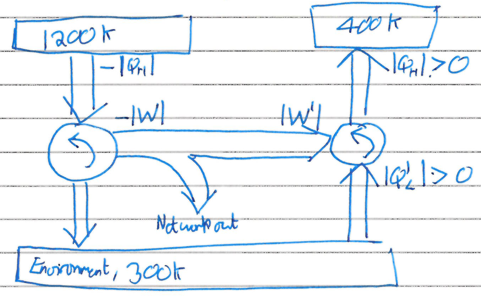 1200K
400K
-|QH|
|QH|>0
-|W|
|W'|
|Q'L|>0
Net work out
Environment, 300K